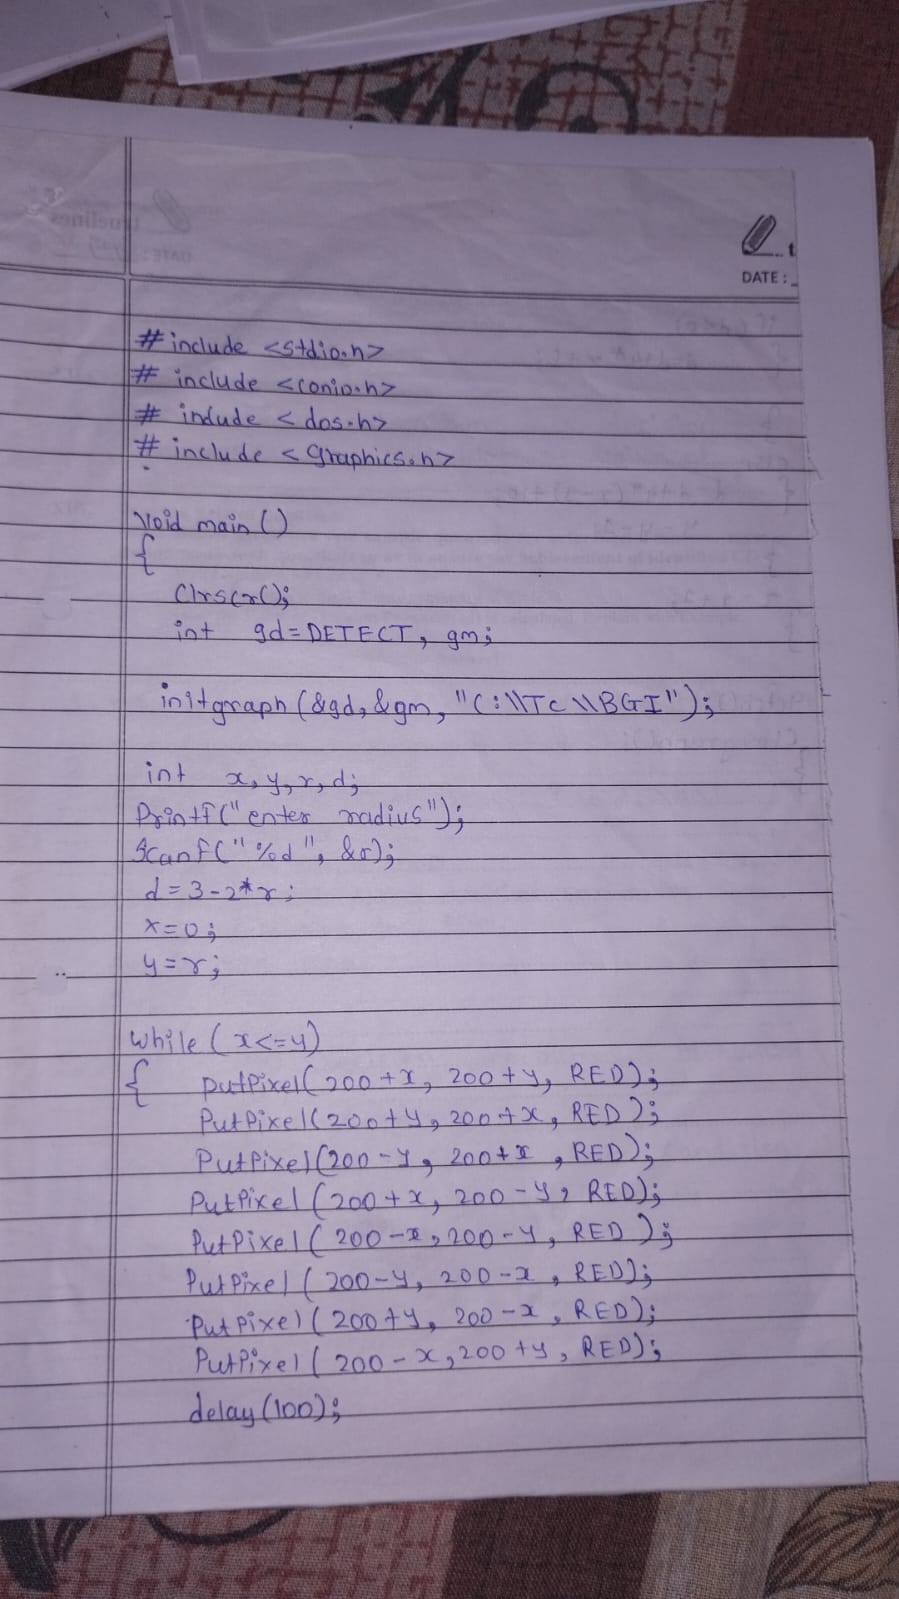 DATE:
#include <stdio.h>
# include <conio.h>
# include <dos.h>
# include <graphics.h>
void main()
{
Clrscr();
int gd=DETECT, gm;
initgraph (&gd, &gm, "C:\\TC\\BGI");
int x, y, r, d;
Printf("enter radius");
Scanf("%d", &r);
d=3-2*r;
x=0;
y=r;
while (x<=y)
{ putPixel(200+x, 200+y, RED);
PutPixel(200+y, 200+x, RED);
PutPixel(200-y, 200+x, RED);
PutPixel (200+x, 200-y, RED);
PutPixel (200-x, 200-y, RED );
PutPixel (200-y, 200-x, RED);
PutPixel (200+y, 200-x, RED);
PutPixel ( 200-x, 200+y, RED);
delay(100);